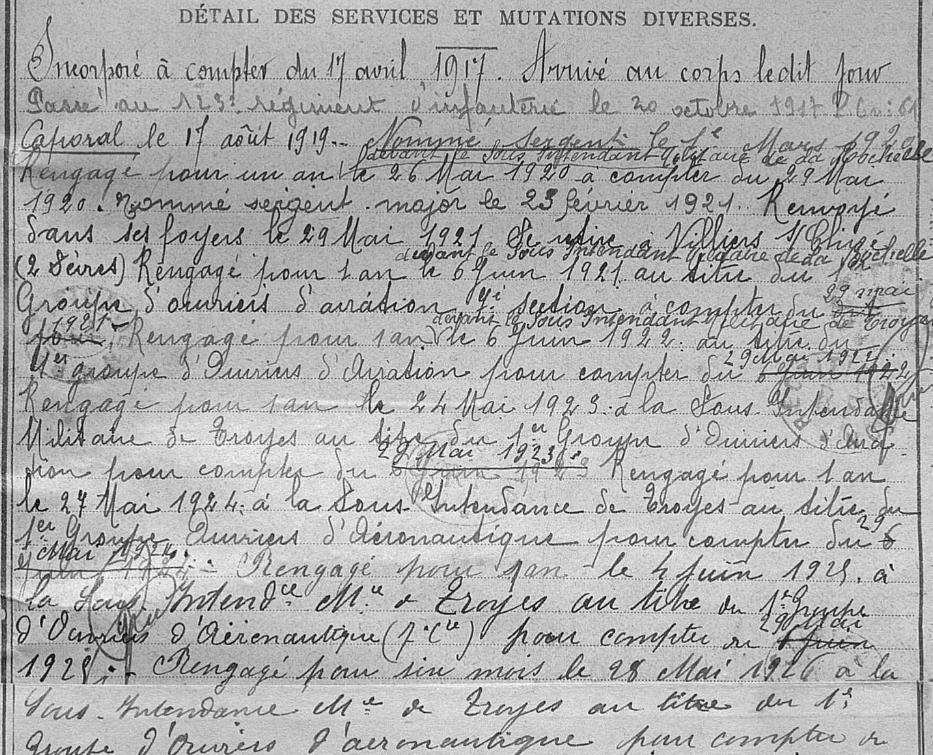 DÉTAIL DES SERVICES ET MUTATIONS DIVERSES.
Incorporé à compter du 17 avril 1917. Arrivé au corps ledit jour
Passé au 123e régiment d'infanterie le 20 octobre 1917
Caporal le 17 août 1919. Nommé sergent le 1er Mars 1920
devant le Sous Intendant Militaire de la Rochelle
Rengagé pour un an le 26 Mai 1920 à compter du 29 Mai
1920. Nommé sergent-major le 23 février 1921. Renvoyé
dans ses foyers le 29 Mai 1921 Se retire à Villiers
devant le Sous Intendant Militaire de la Rochelle
(2 Sèvres) Rengagé pour 1 an le 6 Juin 1921 au titre du 1er
29 mai
Groupe d'ouvriers d'aviation section à compter du dit
1921 devant le Sous Intendant Militaire de Troyes
jour, Rengagé pour 1 an le 6 Juin 1922 au titre du
29 Mai 1922
1er groupe d'Ouvriers d'Aviation pour compter du 6 Juin 1922
Rengagé pour 1 an le 24 Mai 1923 à la Sous Intendance
Militaire de Troyes au titre du 1er Groupe d'Ouvriers d'Avia-
29 Mai 1923
tion pour compter du 6 Juin 1923 Rengagé pour 1 an
le 27 Mai 1924 à la Sous Intendance de Troyes au titre du
1er Groupe Ouvriers d'Aéronautique pour compter du 29 6
Mai 1924
Juin 1924. Rengagé pour 1 an le 4 Juin 1925 à
la Sous Intendce Mre de Troyes au titre du 1er Groupe
29 Mai
d'Ouvriers d'Aéronautique pour compter du Juin
1925. Rengagé pour six mois le 28 Mai 1926 à la
Sous-Intendance Mre de Troyes au titre du 1er
Groupe d'Ouvriers d'aéronautique pour compter du